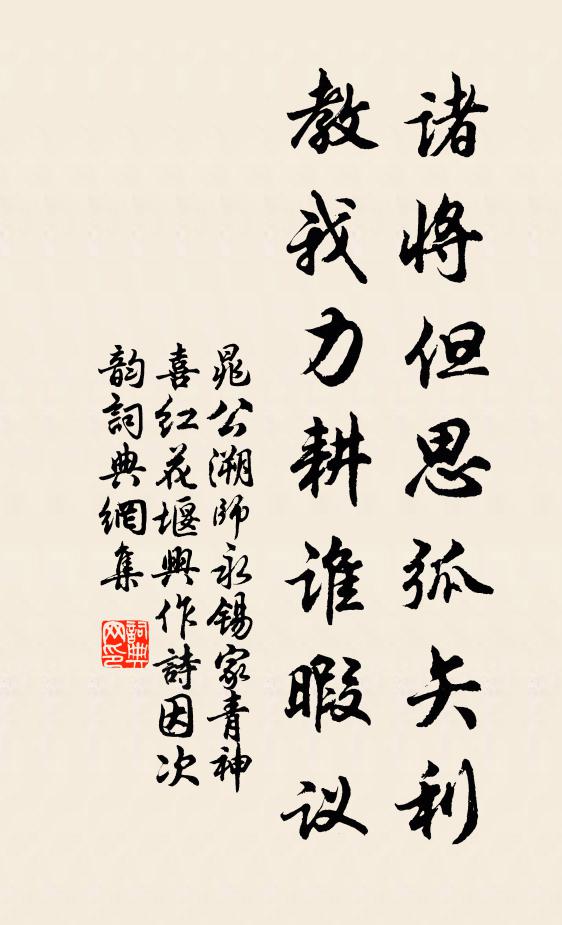 诸将但思弧矢利
教我力耕谁暇议
晁公溯師永锡家青神
喜红花堰興作詩因次
韵詞典網集
詞典网印